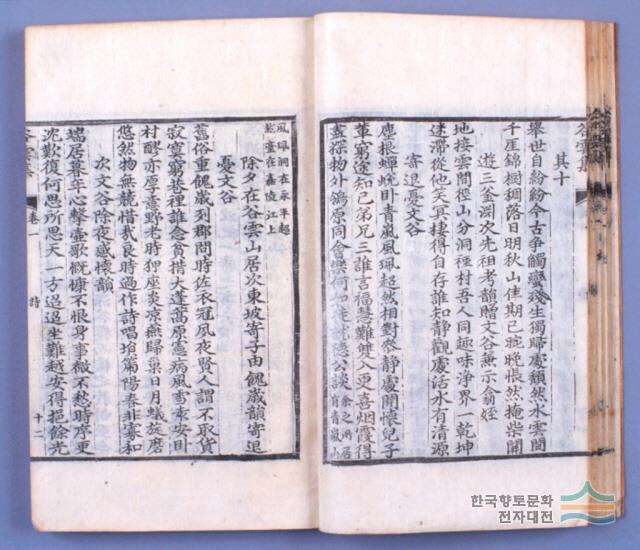 其十
舉世自紛紛今古爭觸蠻殘生獨歸處頹然水雲間
千厓錦樹稠落日明秋山佳期已晼晩悵然掩柴関
遊三釜淵次先祖考韻贈文谷兼示翁姪
地接雲間徑山分洞裡村吾人同趣味淨界一乾坤
迷滯從他笑冥棲得自存誰知靜觀處活水有清源
寄退憂文谷
塵根蟬蛻卧青嵐風珮超然相對參靜處開懷兒子
輩窮途知己弟兄三誰言福慧難雙入更喜烟霞得
盡探物外鴒原同會樂何如
風珮洞在永平起
然臺在嘉陵江上
除夕在谷雲山居次東坡寄子由餽歲韻寄退
憂文谷
舊俗重餽歲列郡問時佐衣冠夙夜賢人謂不取貨
寂寞窮巷裡誰念貧措大蓬蒿原憲病風雪袁安卧
村醪亦厚意野老時狎座炎凉燕歸巢日月蟻旋磨
悠然物無競惜我良時過作詩唱塤篪陽春非寡和
次文谷除夜感懷韻
端居暮年心擊壷歌慨慷不恨身事微不愁時序更
沈歎復何思所思天一方迢迢坐難越安得挹餘光
谷雲集 卷一 詩 十二
谷雲集
한국향토문화
전자대전